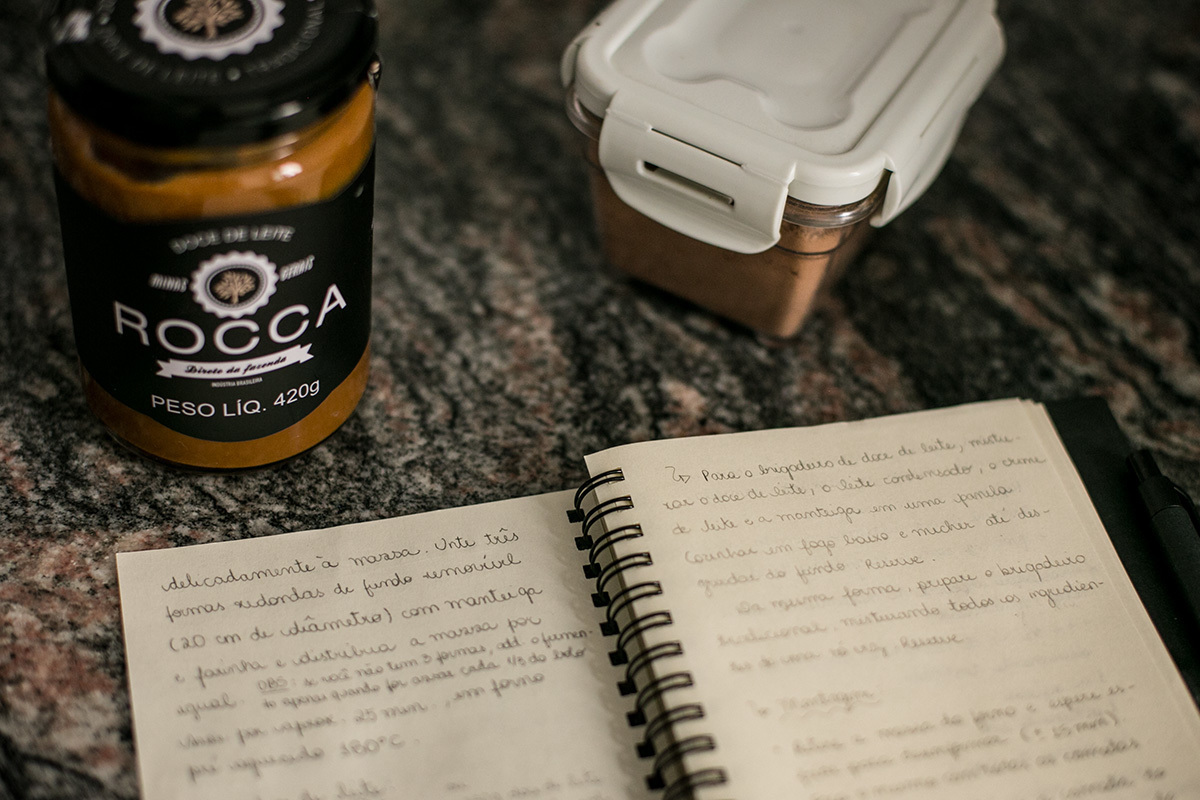 DOCE DE LEITE
MINAS GERAIS
ROCCA
Direto da fazenda
INDÚSTRIA BRASILEIRA
PESO LÍQ. 420g
delicadamente à massa. Unte três
formas redondas de fundo removível
(20 cm de diâmetro) com manteiga
e farinha e distribua a massa por
igual. OBS: se você não tem 3 formas, add. o fermen-
to apenas quando for assar cada 1/3 do bolo
vinos por aprox. 25 min., em forno
pré aquecido 180°C.
leite:
↳ Para o brigadeiro de doce de leite, mistu-
rar o doce de leite, o leite condensado, o creme
de leite e a manteiga em uma panela.
Cozinhar em fogo baixo e mexer até des-
grudar do fundo. Reserve.
Da mesma forma, prepare o brigadeiro
tradicional, misturando todos os ingredien-
tes de uma só vez. Reserve.
↳ Montagem
a massa do forno e espere es-
(± 15 min).
as camadas